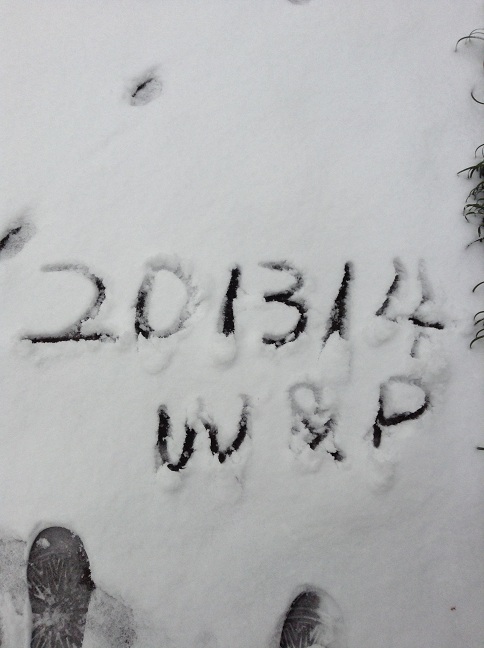 201314
W&P